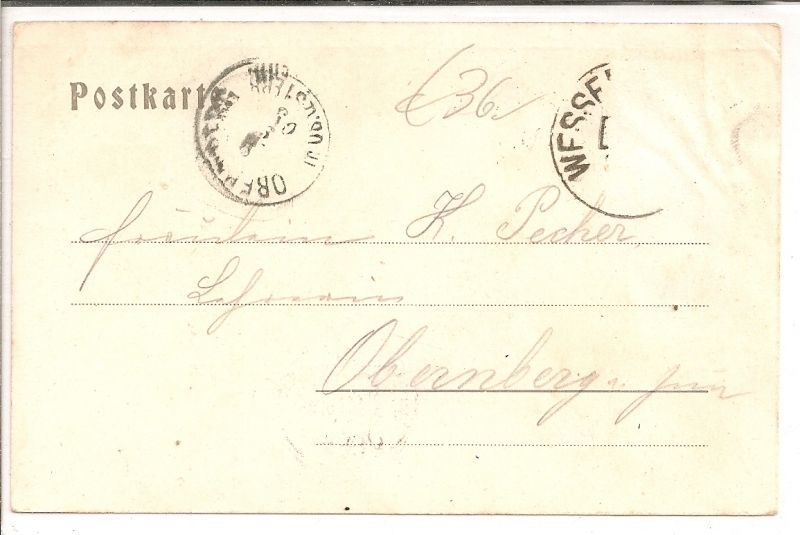 Postkarte
36
WESSE
Fräulein K. Pecher
Lehrerin
Obernberg a. Inn